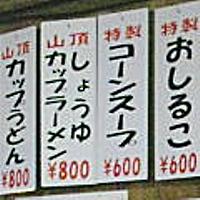 特製
おしるこ
¥600
特製
コーンスープ
¥600
山頂
しょうゆ
カップラーメン
¥800
山頂
カップうどん
¥800